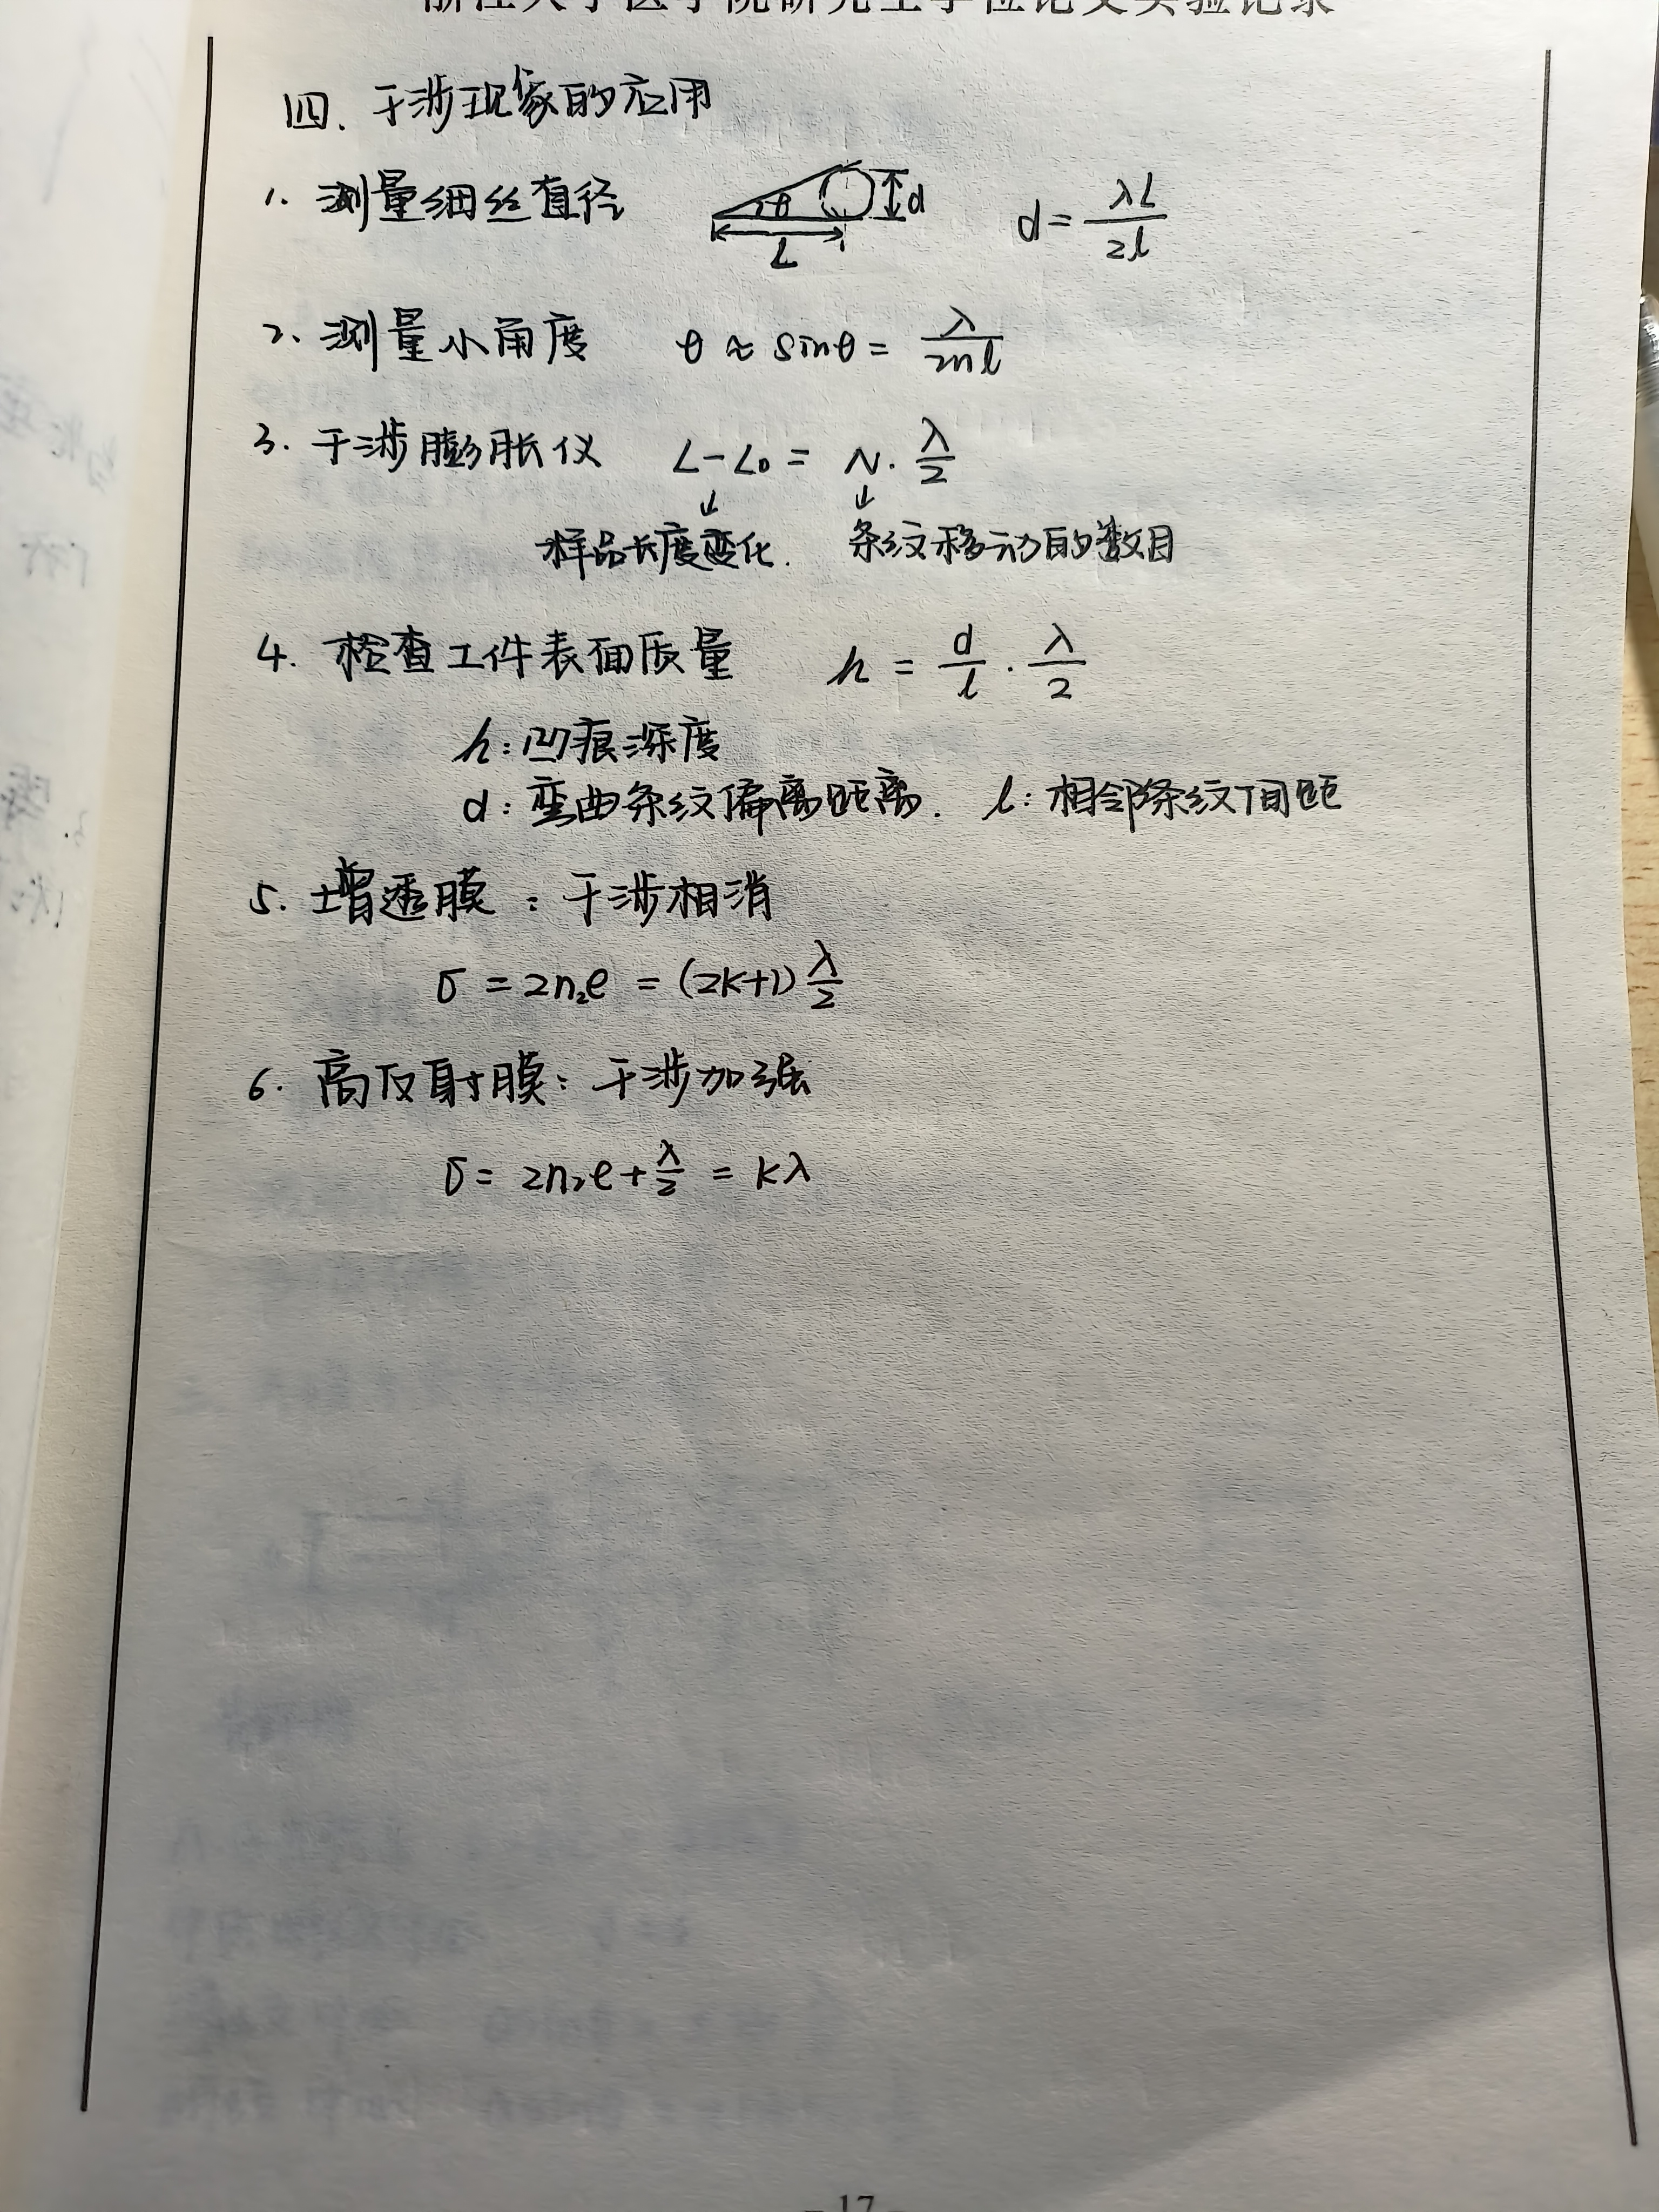 浙江大学医学院研究生学位论文实验记录
四. 干涉现象的应用
1. 测量细丝直径 θ d L d = λL / 2l
2. 测量小角度 θ ≈ sinθ = λ / 2nl
3. 干涉膨胀仪 L-L₀ = N · λ/2
↓ ↓
样品长度变化. 条纹移动的数目
4. 检查工件表面质量 h = d/l · λ/2
h: 凹痕深度
d: 弯曲条纹偏离距离. l: 相邻条纹间距
5. 增透膜: 干涉相消
δ = 2n₂e = (2k+1) λ/2
6. 高反射膜: 干涉加强
δ = 2n₂e + λ/2 = kλ
- 17 -